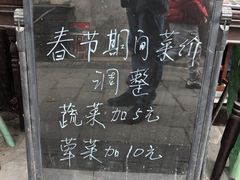 春节期间菜价
调整
蔬菜加5元
荤菜加10元